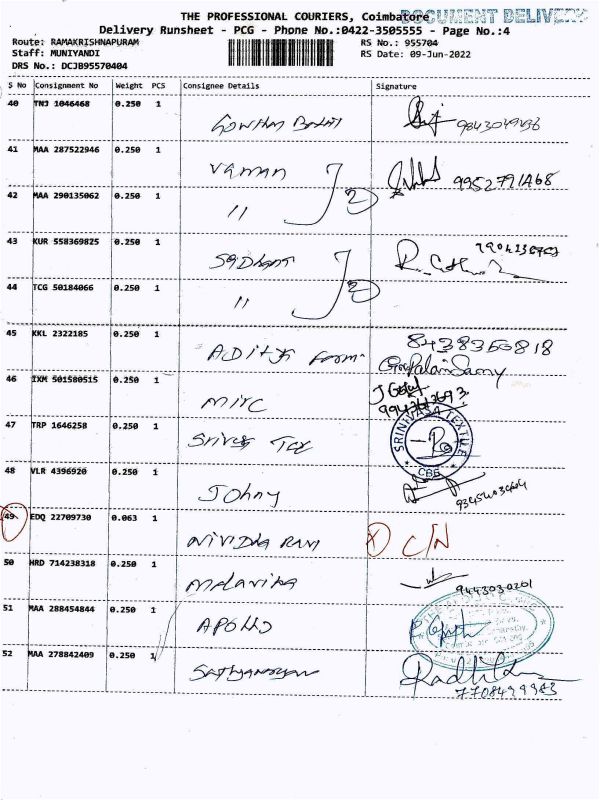 THE PROFESSIONAL COURIERS, Coimbatore
DOCUMENT DELIVERY
Delivery Runsheet - PCG - Phone No.:0422-3505555 - Page No.:4
Route: RAMAKRISHNAPURAM RS No.: 955704
Staff: MUNIYANDI RS Date: 09-Jun-2022
DRS No.: DCJB95570404
S No Consignment No Weight PCS Consignee Details Signature
40 TNJ 1046468 0.250 1
41 MAA 287522946 0.250 1 Vaman
42 MAA 290135062 0.250 1 " 2
43 KUR 558369825 0.250 1
44 TCG 50184066 0.250 1 " 2
45 KKL 2322185 0.250 1 Aditya Farm 8438350818
Gopalan Samy
46 IXM 501580515 0.250 1
47 TRP 1646258 0.250 1 Tex SRINIVASA TEXTILE CBE
48 VLR 4396920 0.250 1 Johny
49 EDQ 22709730 0.063 1 X C/N
50 HRD 714238318 0.250 1 Malavika 9443030201
51 MAA 288454844 0.250 1 APOLLO
52 MAA 278842409 0.250 1 Sathyanarayan